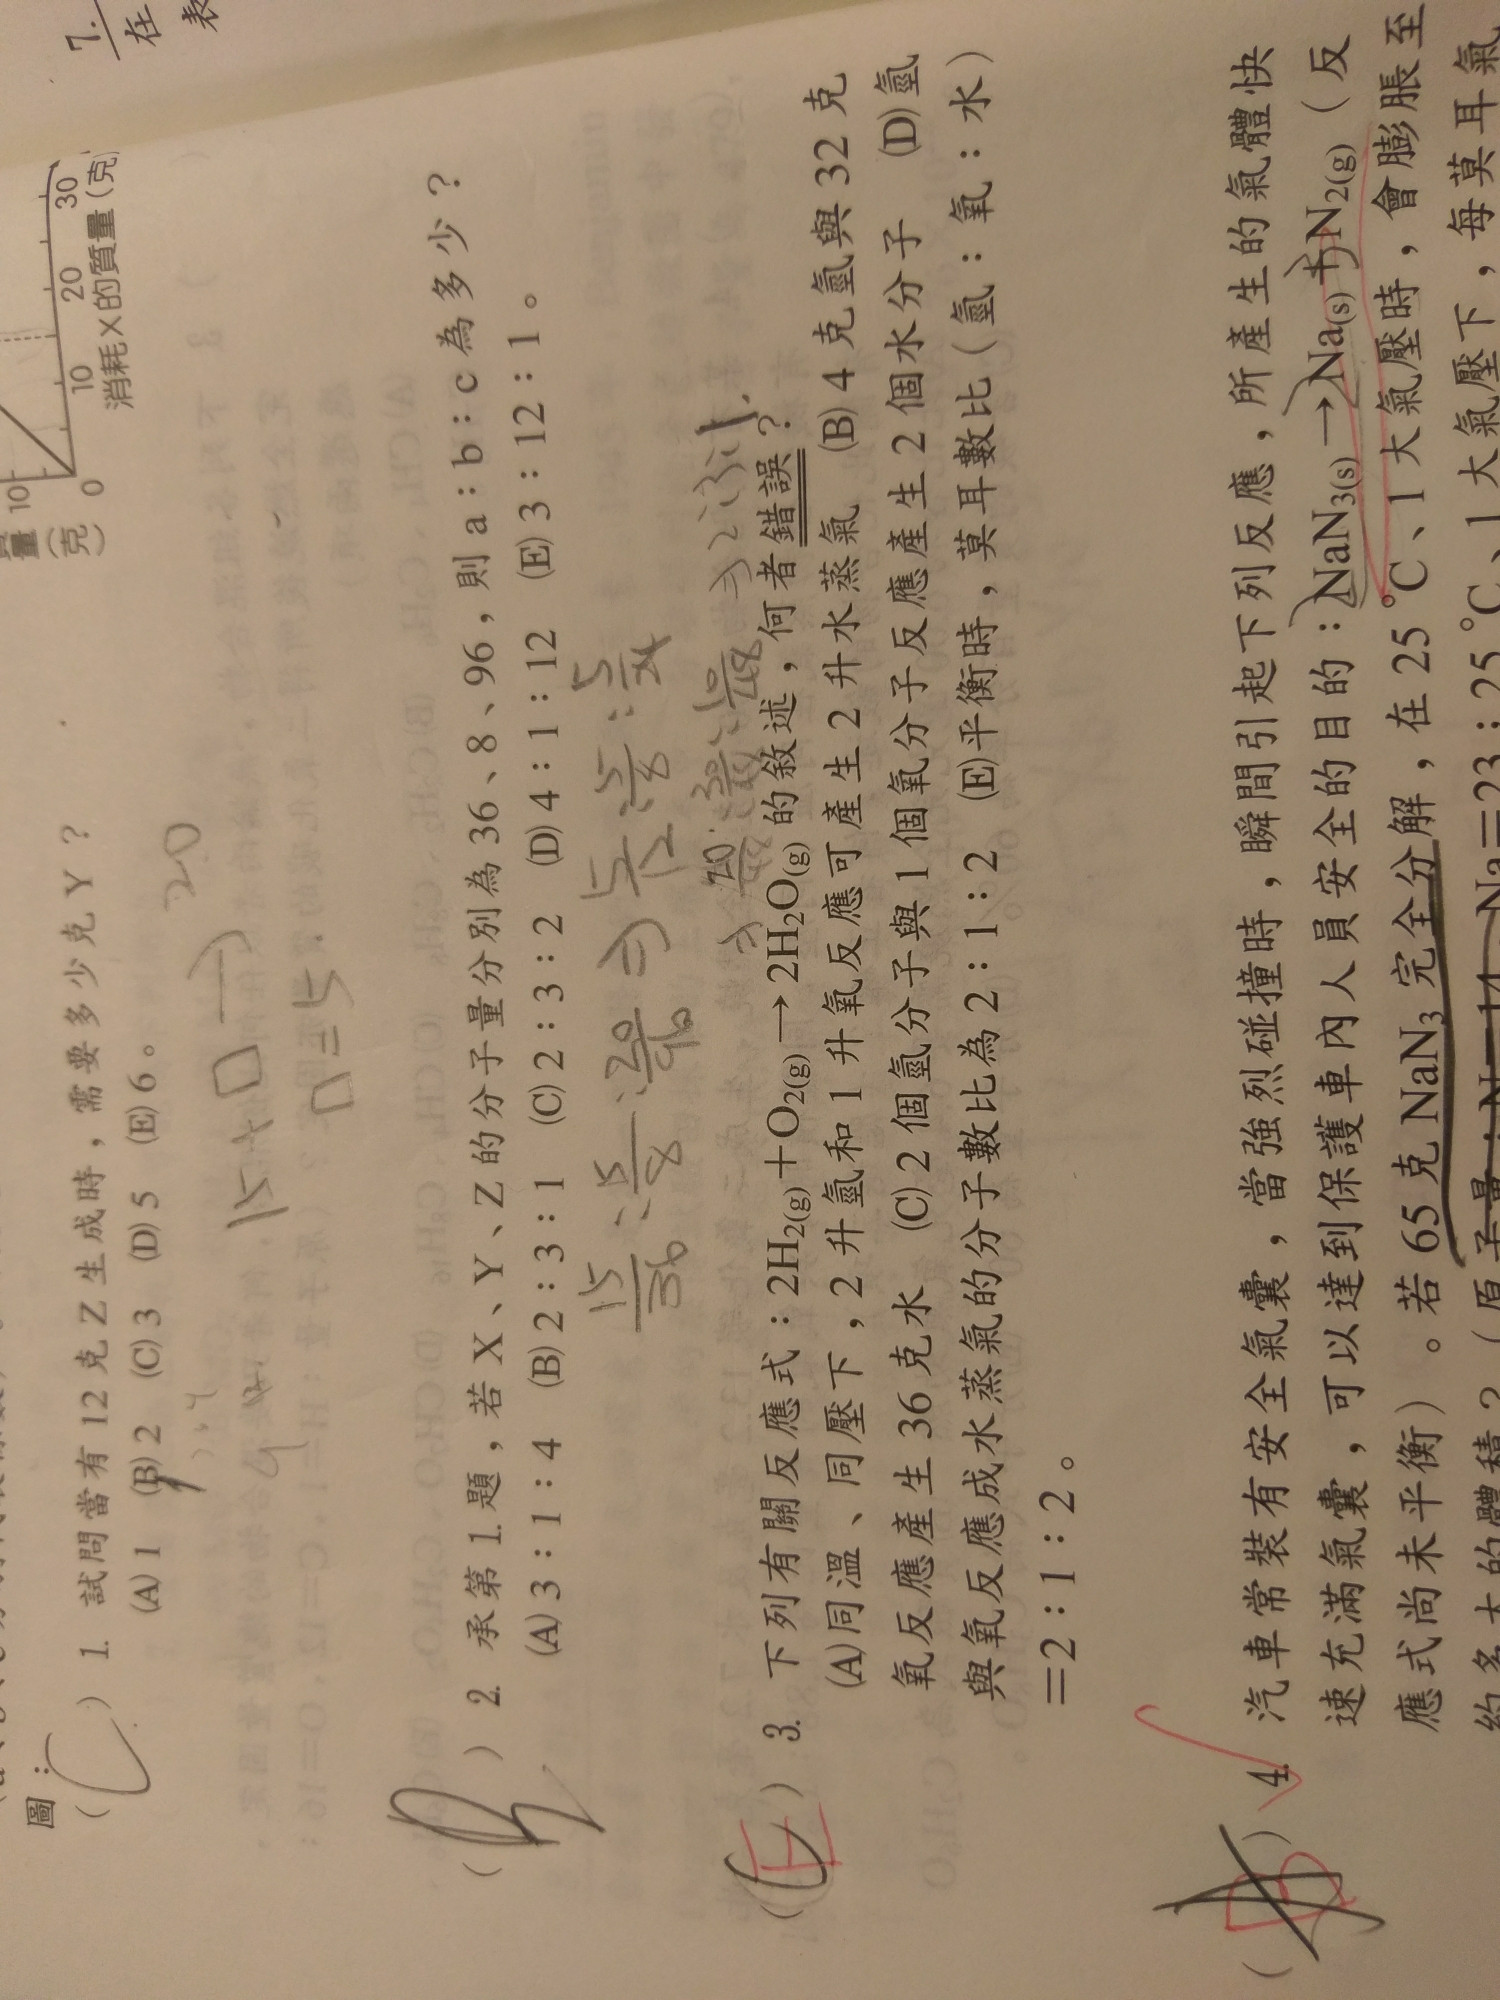 7.
在
表
10
量
(克)
0 10 20 30
消耗X的質量(克)
圖：
(C) 1. 試問當有 12 克 Z 生成時，需要多少克 Y？
(A) 1 (B) 2 (C) 3 (D) 5 (E) 6。
15+□→20
□=5
(B) 2. 承第 1.題，若 X、Y、Z 的分子量分別為 36、8、96，則 a：b：c 為多少？
(A) 3：1：4 (B) 2：3：1 (C) 2：3：2 (D) 4：1：12 (E) 3：12：1。
15/36 : 5/8 : 20/96 ⇒ 5/12 : 5/8 : 5/24
⇒ 20/48 : 30/48 : 10/48 ⇒ 2:3:1
(E) 3. 下列有關反應式：2H₂(g)＋O₂(g)→2H₂O(g) 的敘述，何者錯誤？
(A)同溫、同壓下，2 升氫和 1 升氧反應可產生 2 升水蒸氣 (B) 4 克氫與 32 克
氧反應產生 36 克水 (C) 2 個氫分子與 1 個氧分子反應產生 2 個水分子 (D)氫
與氧反應成水蒸氣的分子數比為 2：1：2 (E)平衡時，莫耳數比（氫：氧：水）
＝2：1：2。
(B) 4. 汽車常裝有安全氣囊，當強烈碰撞時，瞬間引起下列反應，所產生的氣體快
速充滿氣囊，可以達到保護車內人員安全的目的：NaN₃(s)→Na(s)＋N₂(g)（反
應式尚未平衡）。若 65 克 NaN₃ 完全分解，在 25 ℃、1 大氣壓時，會膨脹至
約多大的體積？（原子量：N＝14，Na＝23；25 ℃、1 大氣壓下，每莫耳氣